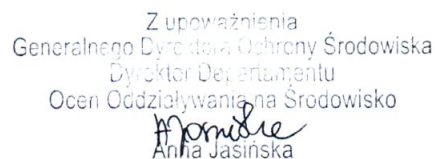 Z upoważnienia
Generalnego Dyrektora Ochrony Środowiska
Dyrektor Departamentu
Ocen Oddziaływania na Środowisko
Anna Jasińska